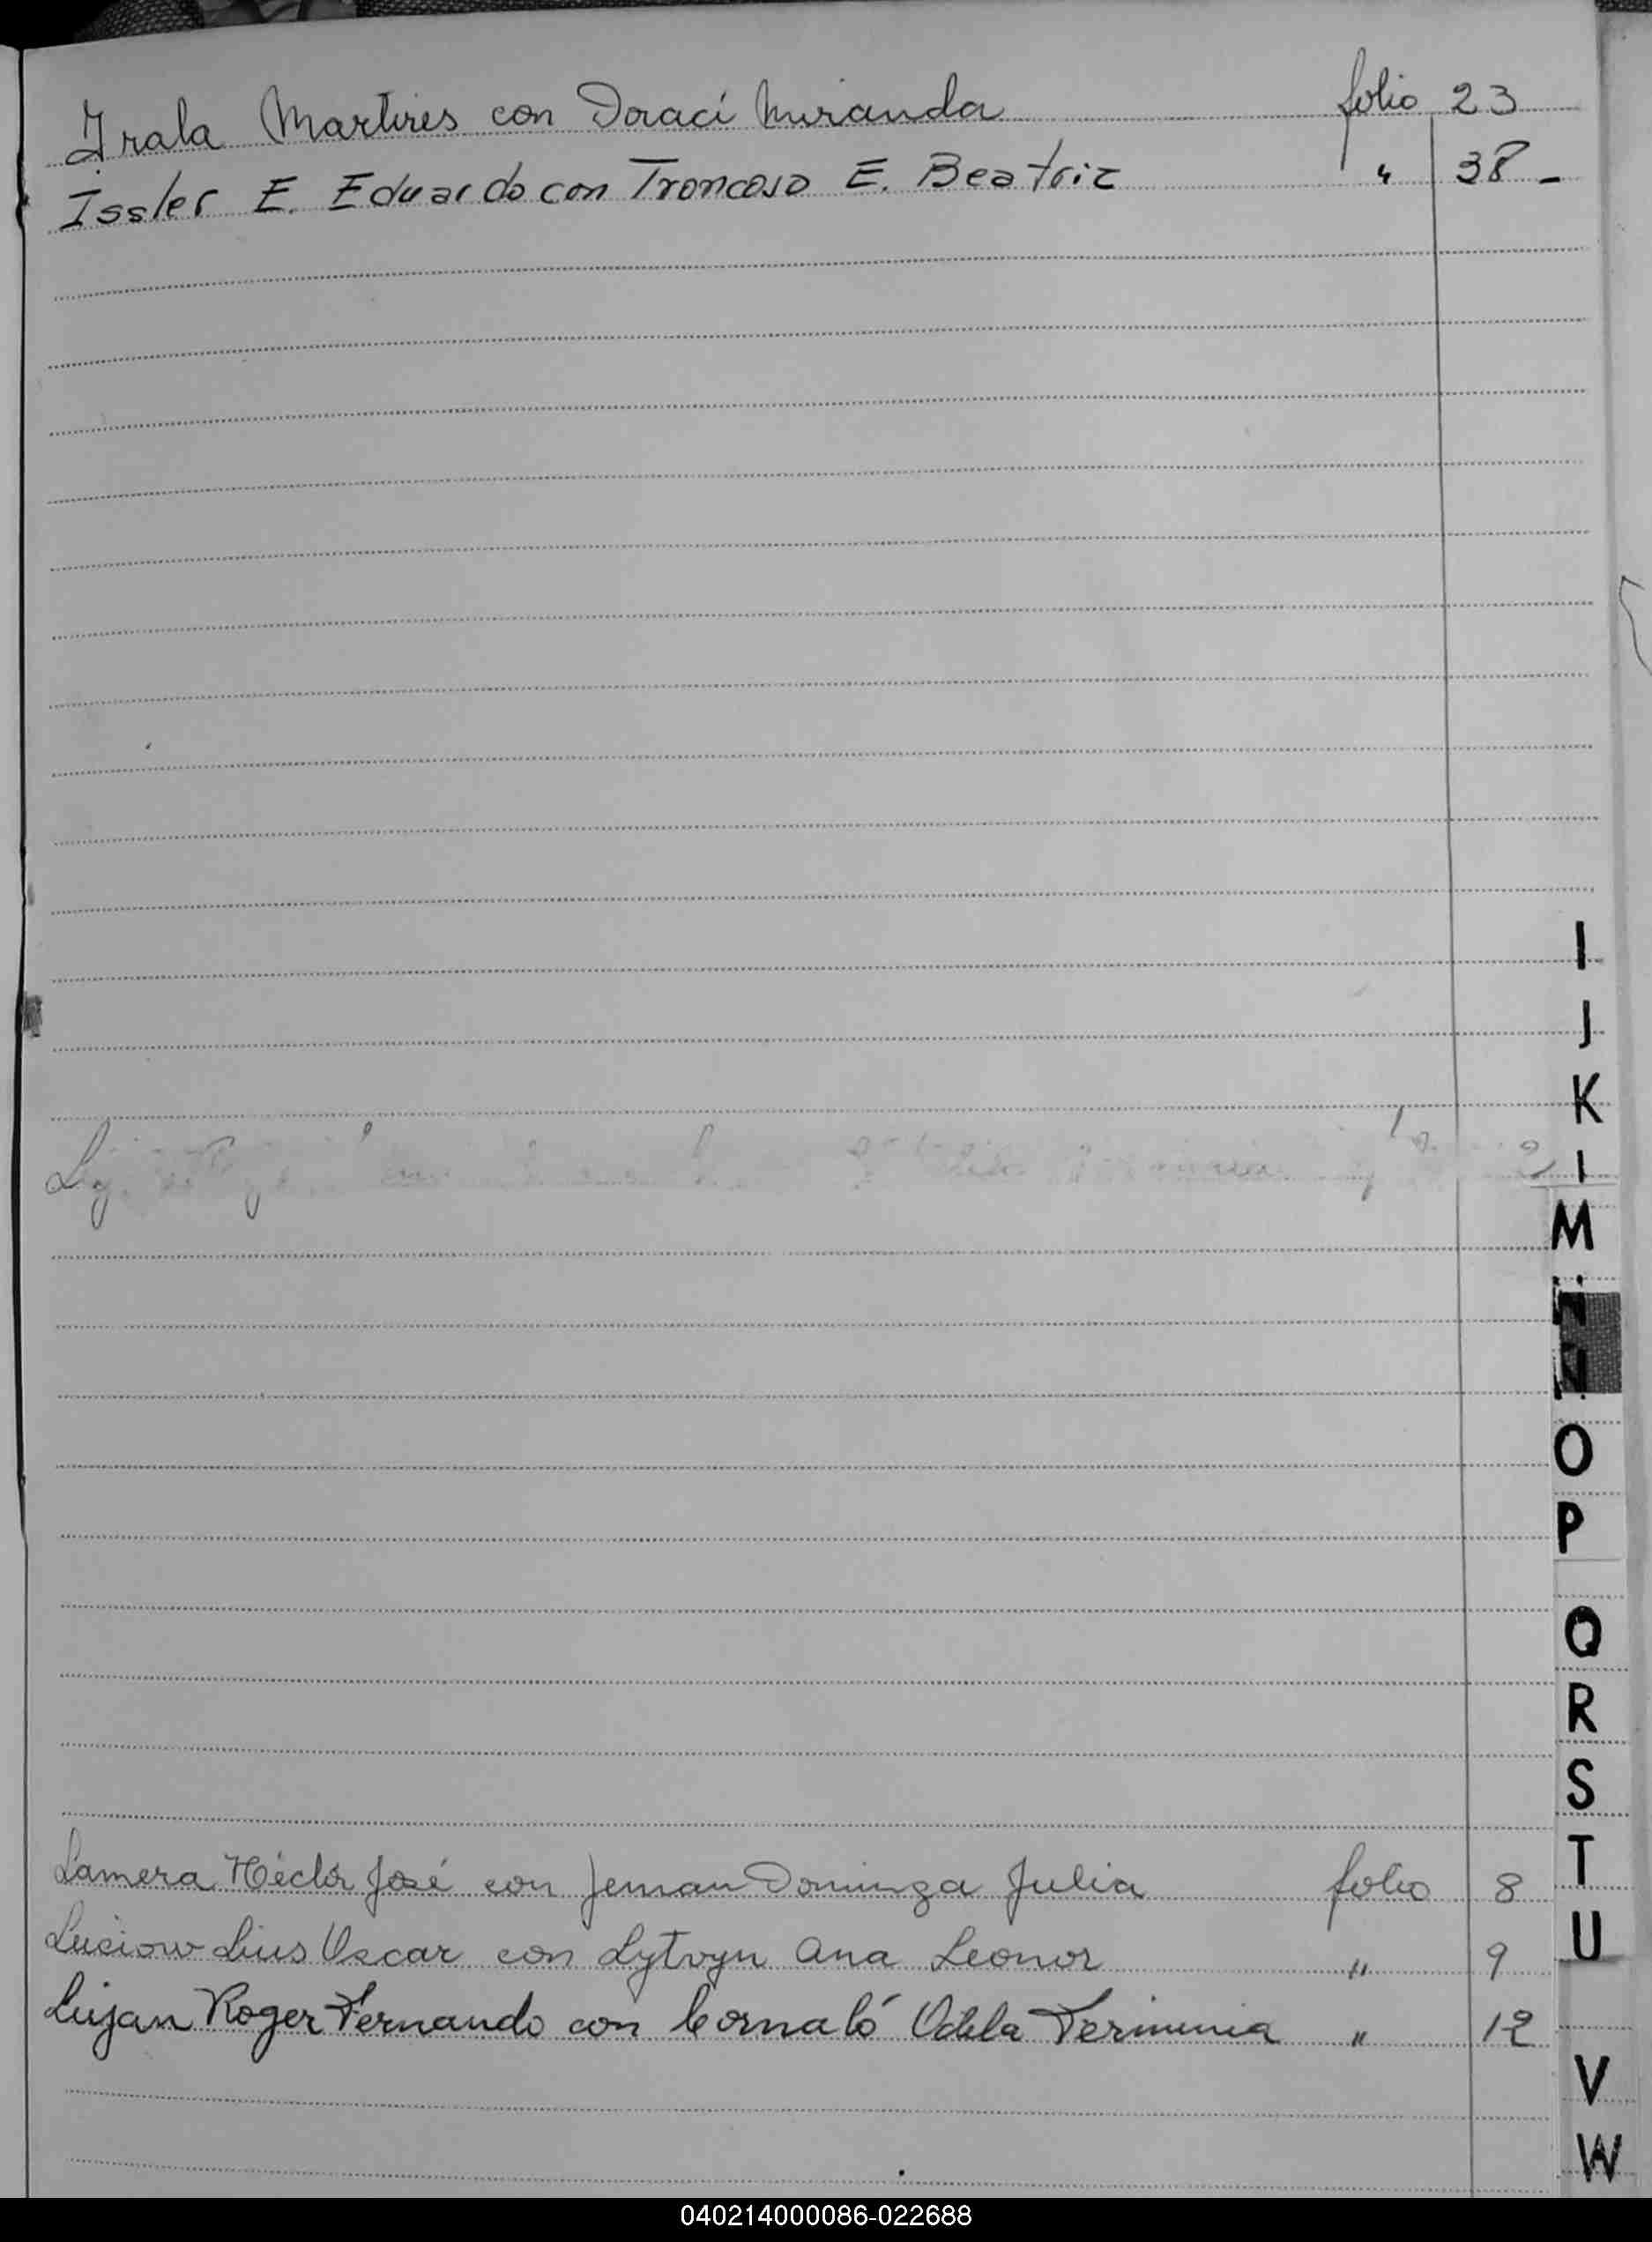 Irala Martires con Doraci Miranda folio 23
Issler E. Eduardo con Troncoso E. Beatriz " 38 -
I
J
K
l
M
N
N
O
P
Q
R
S
T
U
V
W
Lamera Héctor José con Jeman Dominga Julia folio 8
Luciow Luis Oscar con Lytvyn Ana Leonor " 9
Lujan Roger Fernando con Cornaló Odila Ferminia " 12
040214000086-022688